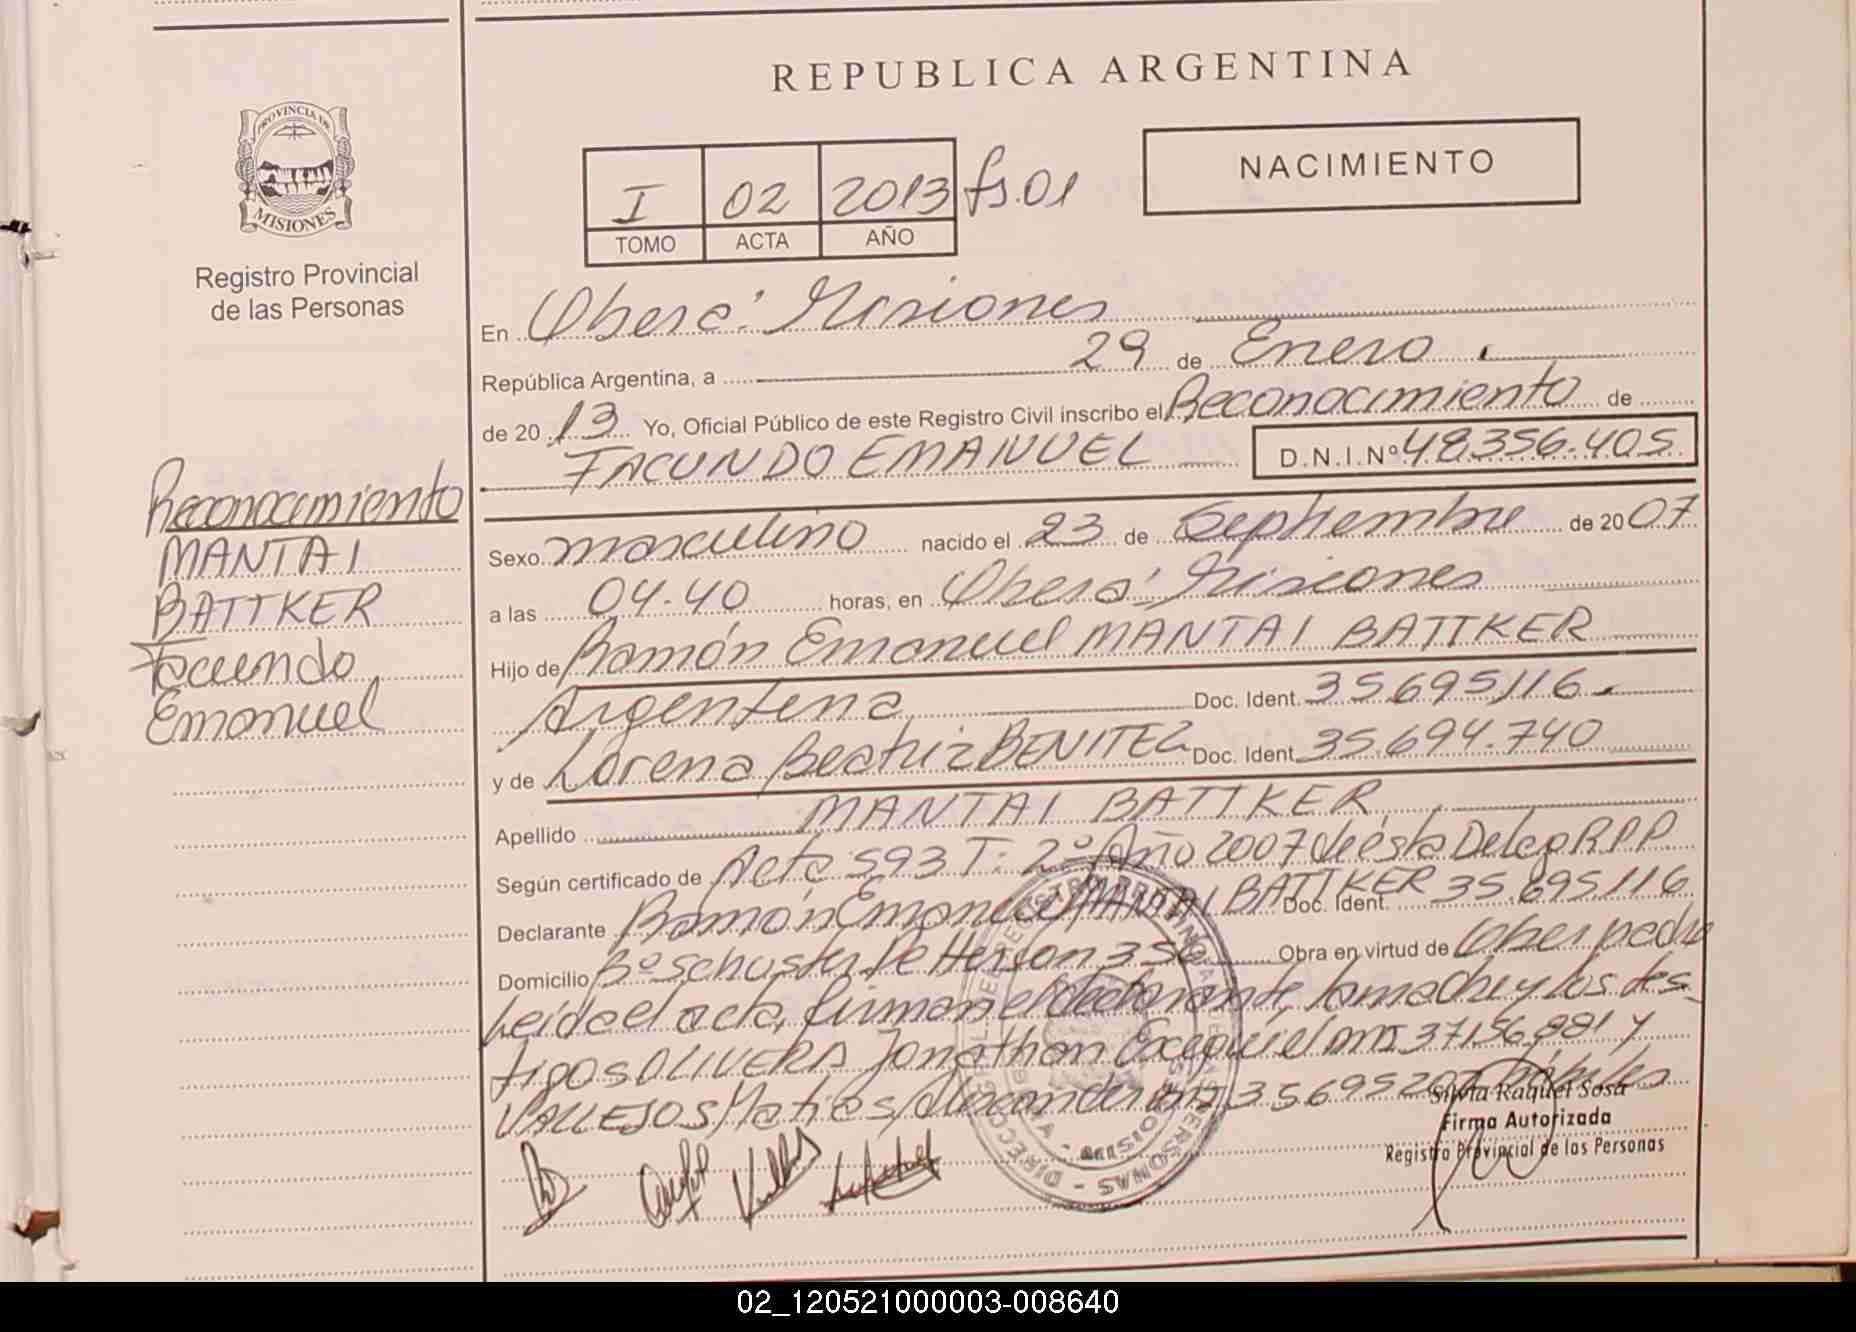 REPUBLICA ARGENTINA
NACIMIENTO
I 02 2013 fs.01
TOMO ACTA AÑO
PROVINCIA DE
MISIONES
Registro Provincial
de las Personas
Reconocimiento
MANTAI
BATTKER
Facundo
Emanuel
En Oberá. Misiones
República Argentina, a 29 de Enero
de 20 13 Yo, Oficial Público de este Registro Civil inscribo el Reconocimiento de
FACUNDO EMANUEL D.N.I.Nº 48.356.405
Sexo masculino nacido el 23 de Septiembre de 20 07
a las 04.40 horas, en Oberá. Misiones
Hijo de Ramón Emanuel MANTAI BATTKER
Argentina Doc. Ident. 35.695.116
y de Lorena Beatriz BENITEZ Doc. Ident. 35.694.740
Apellido MANTAI BATTKER
Según certificado de Acta 593 T: 2º Año 2007 de ésta Deleg R.P.P
Declarante Ramón Emanuel MANTAI BATTKER Doc. Ident. 35.695.116
Domicilio Bº Schuster De Herson 356 Obra en virtud de
Leída el acta, firman el declarante, la madre y los tes-
tigos OLIVERA Jonathan Exequiel DNI 37.156.881 y
VALLEJOS Matias Alexander
Silvia Raquel Sosa
Firma Autorizada
Registro Provincial de las Personas
02_120521000003-008640